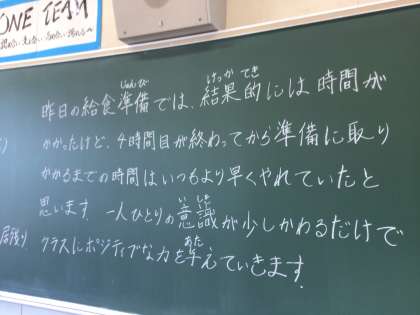 ONE TEAM
昨日の給食準備では、結果的には時間が
じゅんび
けっか てき
かかったけど、4時間目が終わってから準備に取り
かかるまでの時間はいつもより早くやれていたと
思います。一人ひとりの意識が少しかわるだけで
いしき
居残り
クラスにポジティブな力を与えていきます。
あた